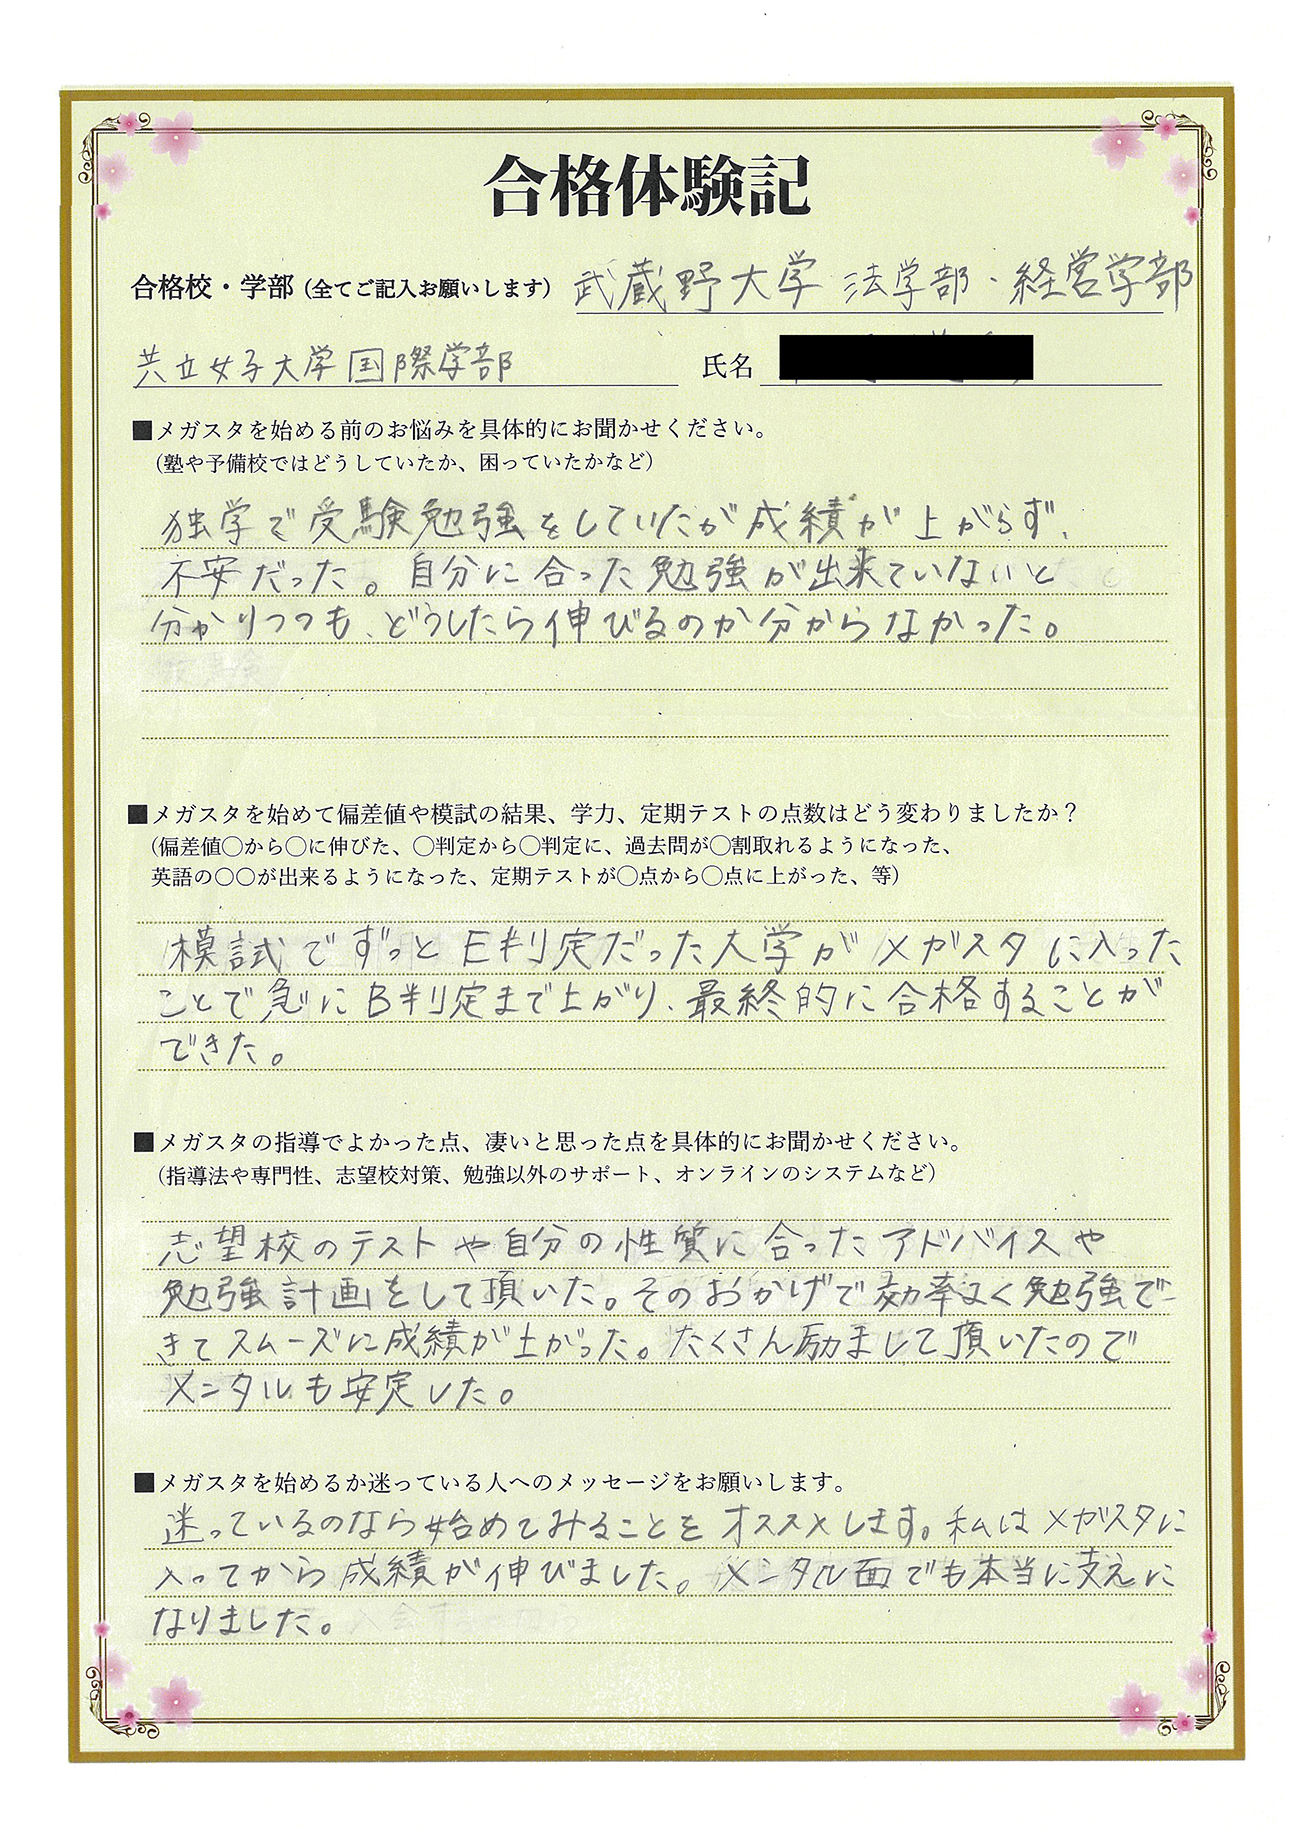 合格体験記
合格校・学部（全てご記入お願いします） 武蔵野大学 法学部・経営学部
共立女子大学国際学部 氏名
■メガスタを始める前のお悩みを具体的にお聞かせください。
（塾や予備校ではどうしていたか、困っていたかなど）
独学で受験勉強をしていたが成績が上がらず、
不安だった。自分に合った勉強が出来ていないと
分かりつつも、どうしたら伸びるのか分からなかった。
■メガスタを始めて偏差値や模試の結果、学力、定期テストの点数はどう変わりましたか？
（偏差値〇から〇に伸びた、〇判定から〇判定に、過去問が〇割取れるようになった、
英語の〇〇が出来るようになった、定期テストが〇点から〇点に上がった、等）
模試でずっとE判定だった大学がメガスタに入った
ことで急にB判定まで上がり、最終的に合格することが
できた。
■メガスタの指導でよかった点、凄いと思った点を具体的にお聞かせください。
（指導法や専門性、志望校対策、勉強以外のサポート、オンラインのシステムなど）
志望校のテストや自分の性質に合ったアドバイスや
勉強計画をして頂いた。そのおかげで効率よく勉強で
きてスムーズに成績が上がった。たくさん励まして頂いたので
メンタルも安定した。
■メガスタを始めるか迷っている人へのメッセージをお願いします。
迷っているのなら始めてみることをオススメします。私はメガスタに
入ってから成績が伸びました。メンタル面でも本当に支えに
なりました。